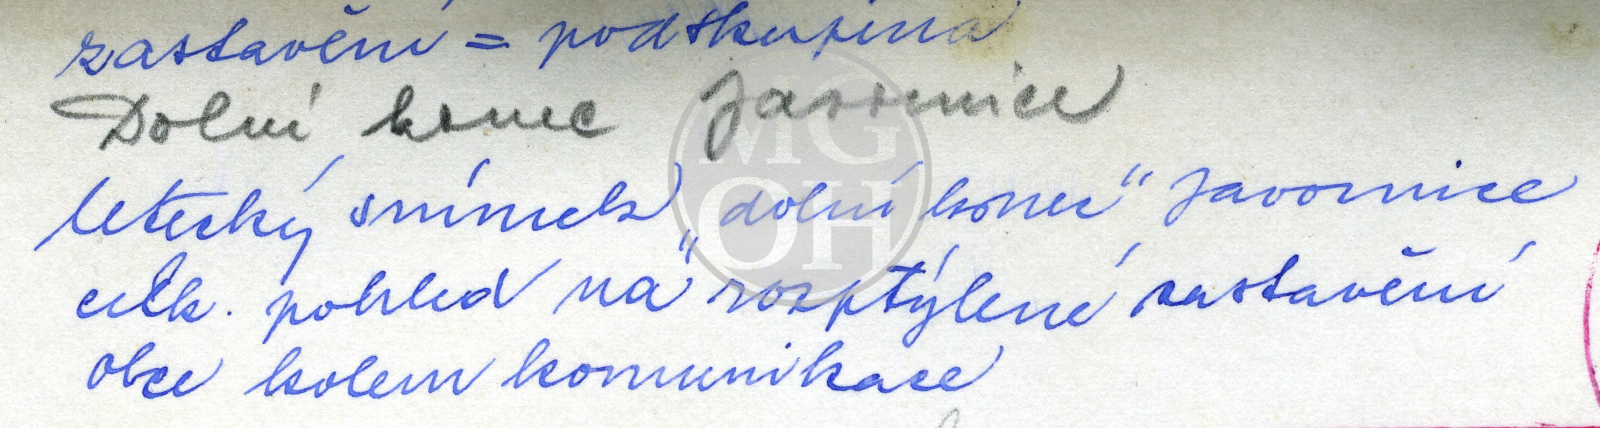 zastavění = podskupina
Dolní konec Javornice
letecký snímek „dolní konec" Javornice
celk. pohled na rozptýlené zastavění
obce kolem komunikace
MG
OH